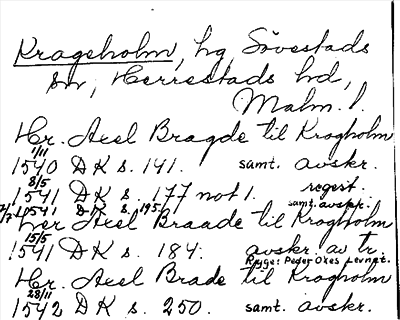 Krageholm, hg Sövestads
sn, Herrestads hd,
Malm. l.
Hr. Axel Bragde til Krogholm
1/11
1540 DK s. 141. samt. avskr.
8/5
1541 DK s. 177 not 1. regest.
1541 DK s. 195 samt. avskr.
Her Axel Braade til Krogholm
15/5
1541 DK s. 184. avskr. av tr.
Ryge: Peder Oxes Levnet.
Hr. Axel Brade til Kragholm
28/11
1542 DK s. 250. samt. avskr.